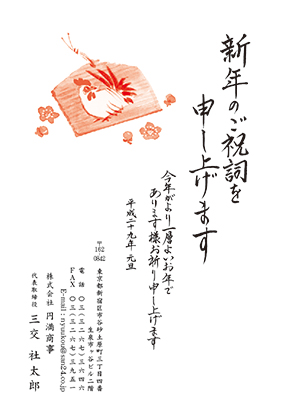 新年のご祝詞を
申し上げます
今年がより一層よいお年で
あります様お祈り申し上げます
平成二十九年 元旦
〒
162
0842
東京都新宿区市谷砂土原町三丁目四番
生泉市ヶ谷ビル二階
電話 〇三(三二六七)三六四六
FAX 〇三(三二六七)三九五一
E-mail:nyuukou@san24.co.jp
株式会社 円満商事
代表取締役 三交 社太郎